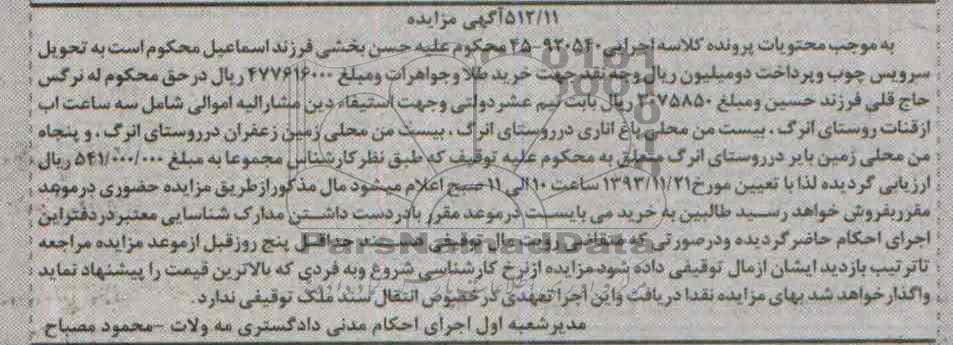 ۵۱۲/۱۱آگهی مزایده
به موجب محتویات پرونده کلاسه اجرایی ۹۲۰۵۴۰-۲۵ محکوم علیه حسن بخشی فرزند اسماعیل محکوم است به تحویل
سرویس چوب وپرداخت دومیلیون ریال وجه نقد جهت خرید طلا وجواهرات ومبلغ ۴۷۷۶۱۶۰۰۰ ریال درحق محکوم له نرگس
حاج قلی فرزند حسین ومبلغ ۲۰۷۵۸۵۰ ریال بابت نیم عشردولتی وجهت استیفاء دین مشارالیه اموالی شامل سه ساعت اب
ازقنات روستای انرگ ، بیست من محلی باغ اناری درروستای انرگ ، بیست من محلی زمین زعفران درروستای انرگ ، و پنجاه
من محلی زمین بایر درروستای انرگ متعلق به محکوم علیه توقیف که طبق نظر کارشناس مجموعا به مبلغ ۵۴۱/۰۰۰/۰۰۰ ریال
ارزیابی گردیده لذا با تعیین مورخ ۱۳۹۳/۱۱/۲۱ ساعت ۱۰ الی ۱۱ صبح اعلام میشود مال مذکورازطریق مزایده حضوری درموعد
مقرربفروش خواهد رسید طالبین به خرید می بایست درموعد مقرر بادردست داشتن مدارک شناسایی معتبردردفتراین
اجرای احکام حاضرگردیده ودرصورتی که متقاضی رویت مال توقیفی هستند حداقل پنج روزقبل ازموعد مزایده مراجعه
تاترتیب بازدید ایشان ازمال توقیفی داده شود مزایده ازنرخ کارشناسی شروع وبه فردی که بالاترین قیمت را پیشنهاد نماید
واگذارخواهد شد بهای مزایده نقدا دریافت واین اجرا تعهدی درخصوص انتقال سند ملک توقیفی ندارد.
مدیرشعبه اول اجرای احکام مدنی دادگستری مه ولات -محمود مصباح
ParsNamadData